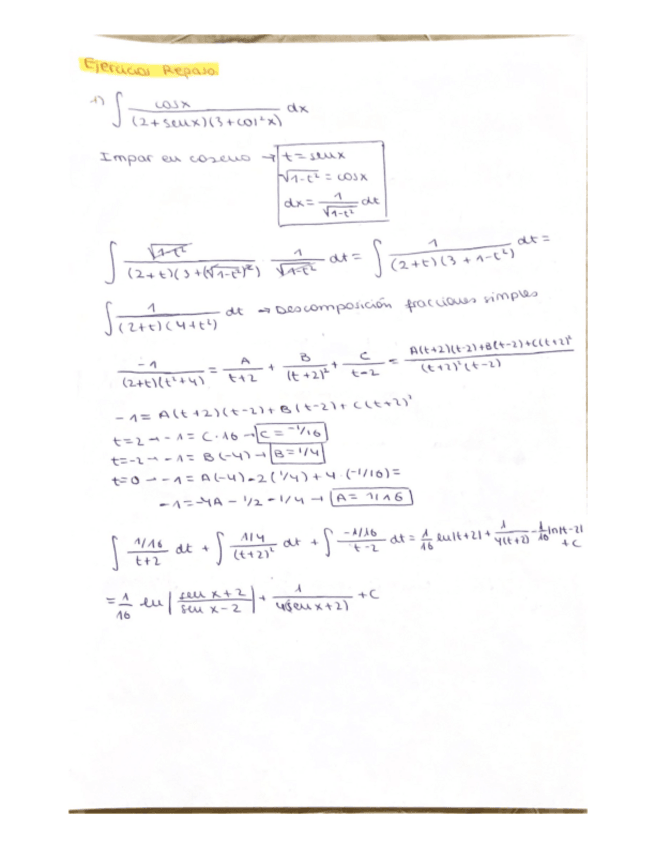 Ejercicios Repaso.
1) ∫ cosx / (2+senx)(3+cos²x) dx
Impar en coseno → t = senx
√1-t² = cosx
dx = 1/√1-t² dt
∫ √1-t² / (2+t)(3+(√1-t²)²) 1/√1-t² dt = ∫ 1 / (2+t)(3+1-t²) dt =
∫ 1 / (2+t)(4+t²) dt → Descomposición fracciones simples
-1 / (2+t)(t²+4) = A / t+2 + B / (t+2)² + C / t-2 = A(t+2)(t-2)+B(t-2)+C(t+2)² / (t+2)²(t-2)
-1 = A(t+2)(t-2)+B(t-2)+C(t+2)²
t=2 → -1 = C·16 → C = -1/16
t=-2 → -1 = B(-4) → B = 1/4
t=0 → -1 = A(-4)-2(1/4)+4·(-1/16) =
-1 = -4A - 1/2 - 1/4 → A = 1/16
∫ 1/16 / t+2 dt + ∫ 1/4 / (t+2)² dt + ∫ -1/16 / t-2 dt = 1/16 ln|t+2| + 1 / 4(t+2) - 1/16 ln|t-2| + C
= 1/16 ln | sen x+2 / sen x-2 | + 1 / 4(sen x+2) + C